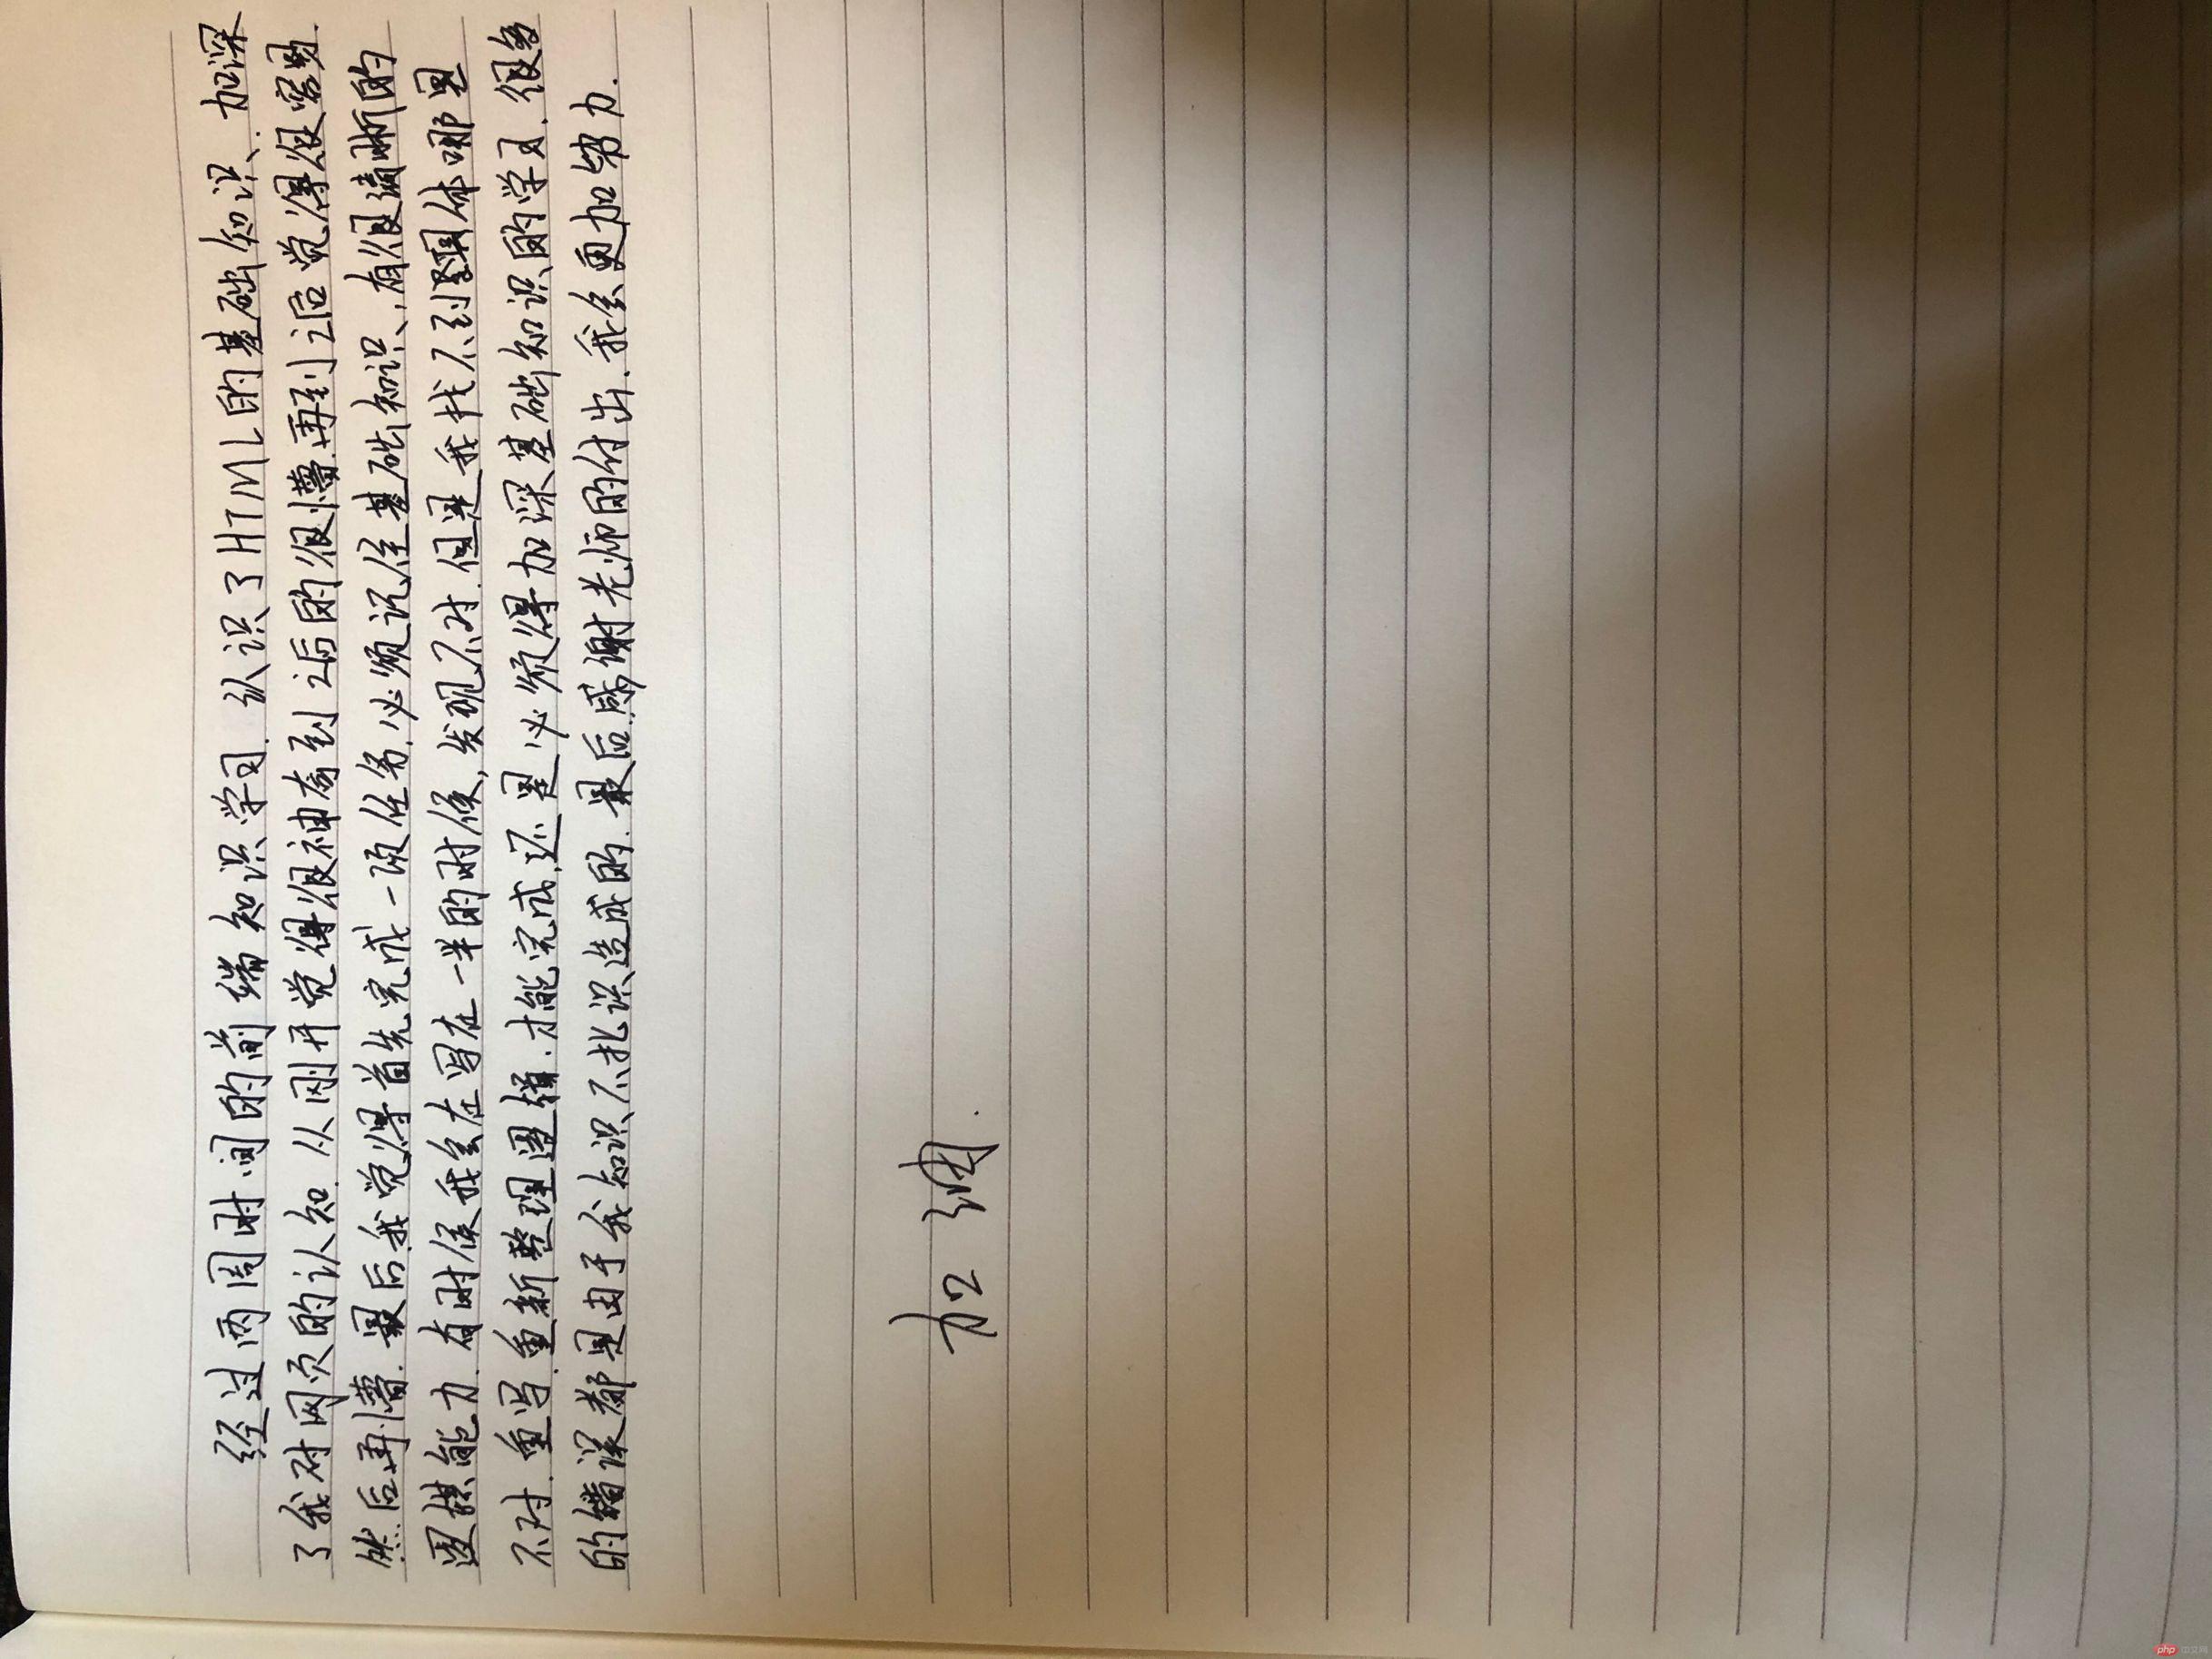 经过两周时间的前端知识学习.认识了HTML的基础知识、加深
了我对网页的认知.从刚开觉得很神奇到之后的很懵.再到之后觉得很容易.
然后再懵.最后我觉得首先完成一项任务,必须记住基础知识,有很清晰的
逻辑能力.有时候我会在写在一半的时候,发现不对.但是我找不到具体哪里
不对.重写.重新整理逻辑.才能完成,还是必须得加深基础知识的学习.很多
的错误都是由于我知识不扎识造成的.最后感谢老师的付出.我会更加努力.
加油
php 中文网